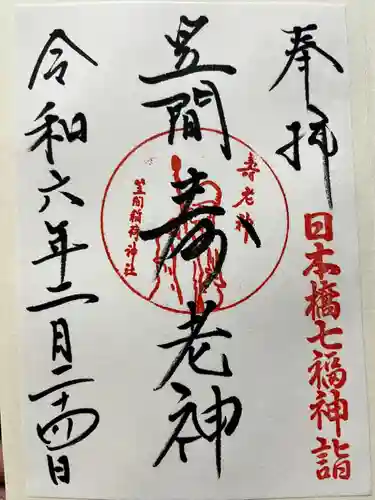 奉拝
日本橋七福神詣
笠間
寿老神
寿老神
笠間稲荷神社
令和六年二月二十四日